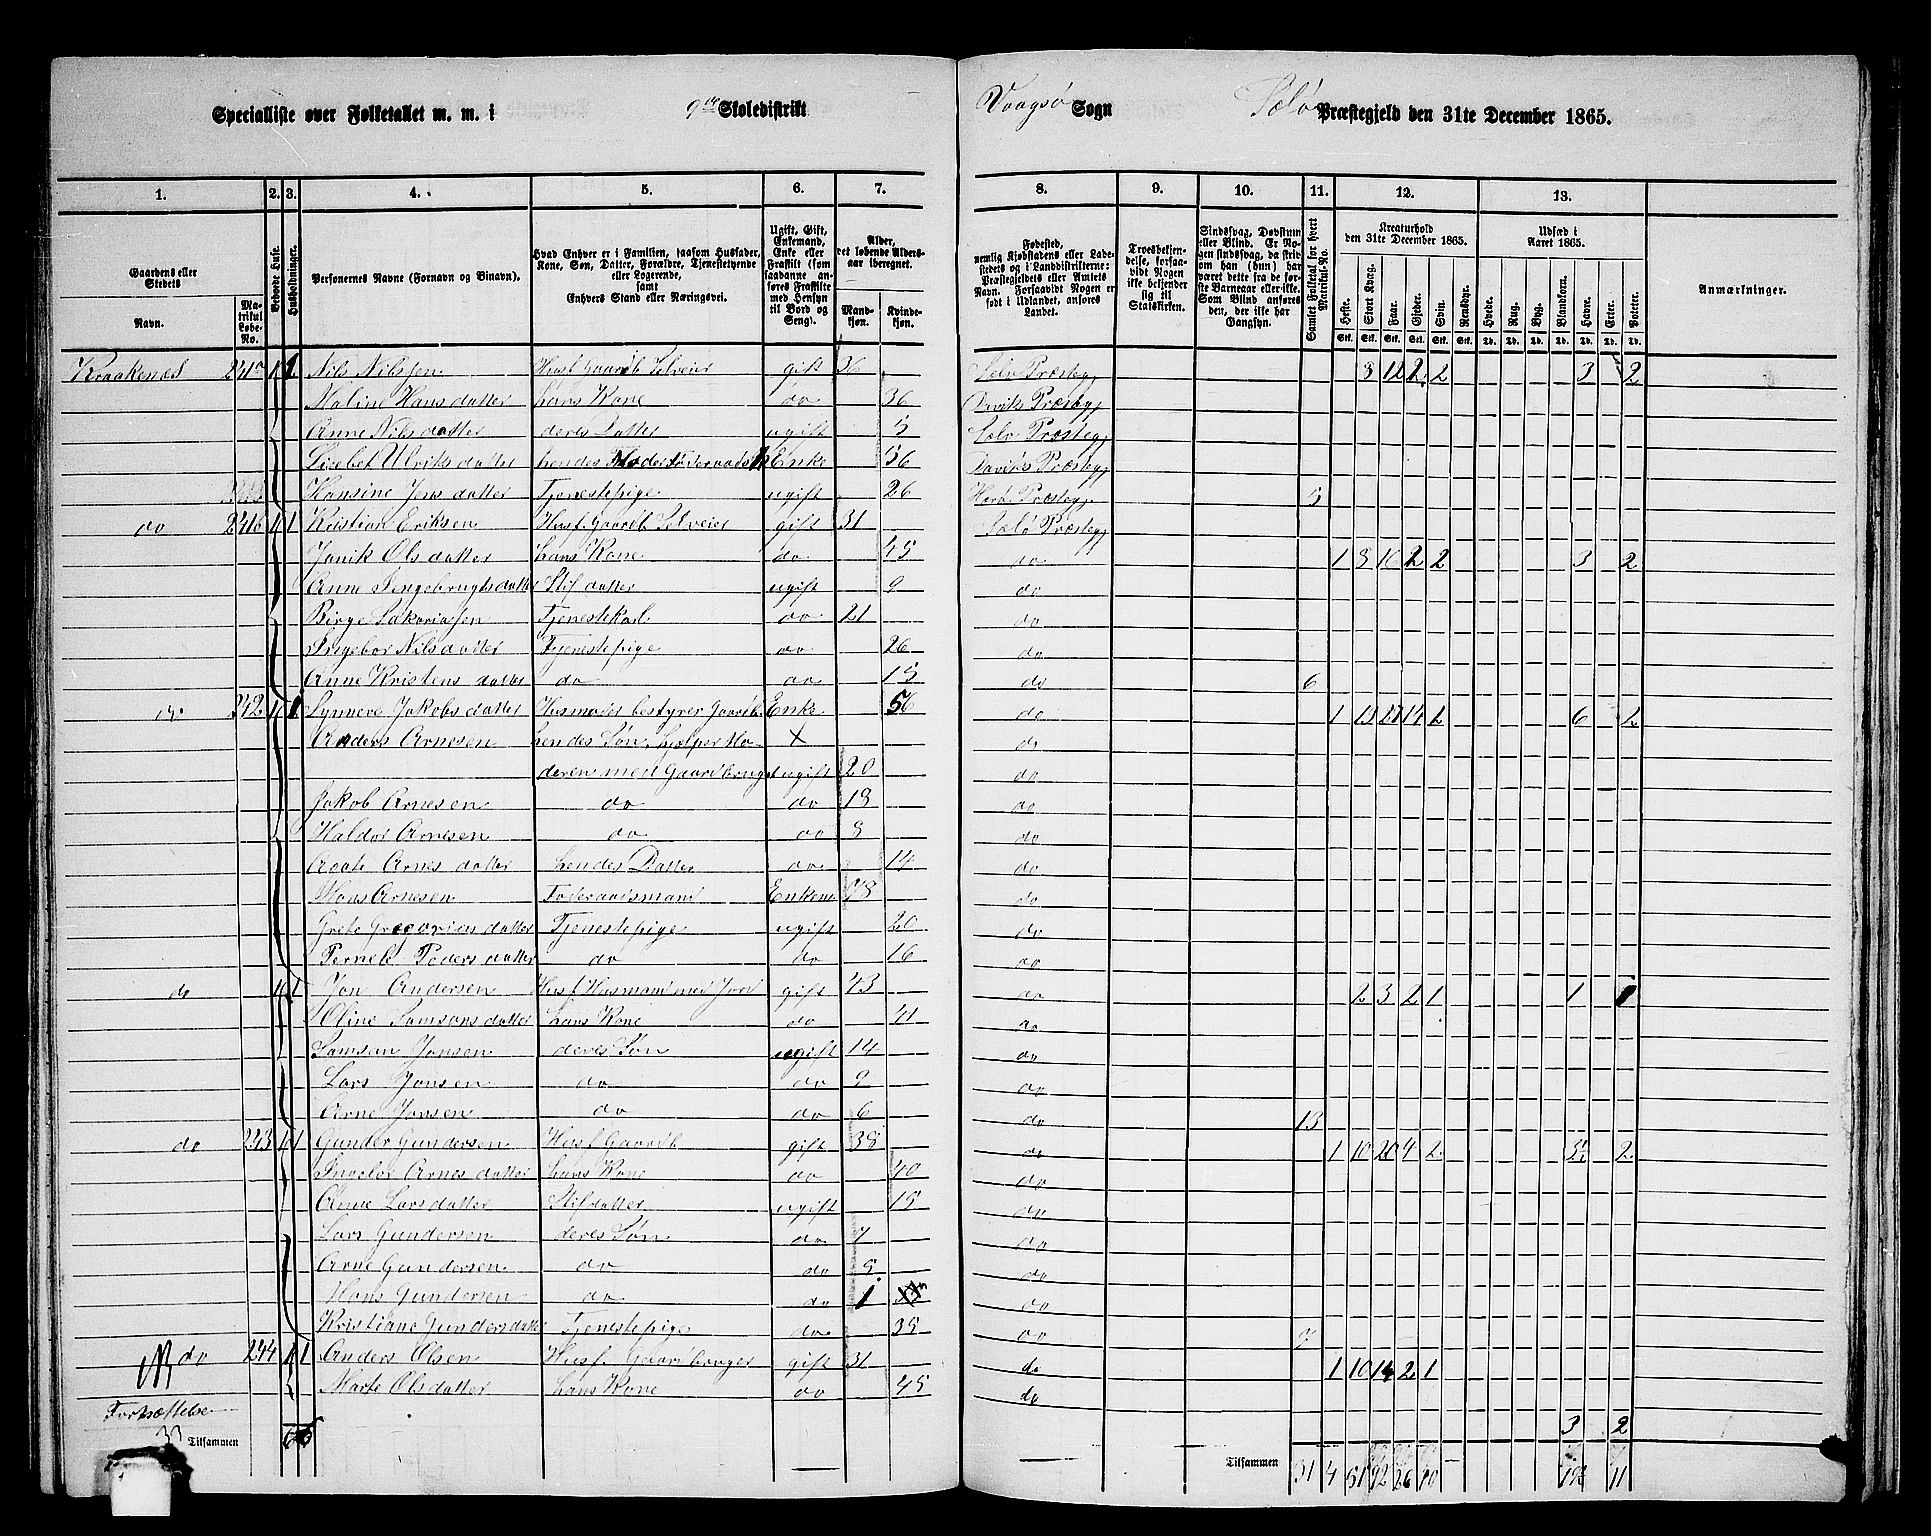 Specialliste over Folketallet m. m. i 9de Skoledistrikt Vaagsø Sogn Sælø Præstegjeld den 31te December 1865.
1. 2. 3. 4. 5. 6. 7. 8. 9. 10. 11. 12. 13.
Gaardens eller Stedets
Navn.
Matrikul Løbe-No.
Beboede Huse.
Husholdninger.
Personernes Navne (Fornavn og Binavn).
Hvad Enhver er i Familien, saasom Husfader, Kone, Søn, Datter, Forældre, Tjenestetyende eller Logerende, samt Enhvers Stand eller Næringsvei.
Ugift, Gift, Enkemand, Enke eller Fraskilt (som saadanne anføres Fraskilte med Hensyn til Bord og Seng).
Alder, det løbende Aldersaar iberegnet.
Mandkjøn. Kvindekjøn.
Fødested, nemlig Kjøbstadens eller Ladestedets og i Landdistrikterne: Præstegjeldets eller Amtets Navn. Forsaavidt Nogen er født i Udlandet, anføres Landet.
Troesbekjendelse, forsaavidt Nogen ikke bekjender sig til Statskirken.
Sindssvag, Døvstum eller Blind. Er Nogen sindssvag, da skrives om han (hun) har været dette fra de første Barneaar eller ikke. Som Blind anføres den, der ikke har Gangsyn.
Samlet Folketal for hvert Matrikul-No.
Kreaturhold den 31te December 1865.
Heste. Stort Kvæg. Faar. Gjeder. Svin. Rensdyr.
Udsæd i Aaret 1865.
Hvede. Rug. Byg. Blandkorn. Havre. Erter. Poteter.
Anmærkninger.
Kraakenæs 241a 1 1 Nils Nilssen Husf Gaardb Selveier gift 36 Selø Præsteg 8 12 2 2 3 2
Maline Hansdatter hans Kone do 36 Daviks Præsteg
Anne Nilsdatter deres Datter ugift 5 Selø Præsteg
Lisebet Ulriksdatter hendes Moder Enke 56 Daviks Præsteg
Hansine Jensdatter Tjenestepige ugift 26 Herø Præsteg 5
do 241b 1 1 Kristian Eriksen Husf. Gaardb Selveier gift 31 Sælø Præsteg
Janik Olsdatter hans Kone do 45 do 1 8 16 2 2 3 2
Anne Ingebrugtsdatter Stifdatter ugift 9 do
Birge Sakariassen Tjenestekarl do 21 do
Ingebor Nilsdatter Tjenestepige do 26 do
Anne Kristensdatter do do 15 do 6
do 242 1 1 Synneve Jakobsdatter Husmoder bestyrer Gaardb. Enke 56 do 1 13 27 14 2 6 2
Anders Arnesen hendes Søn, hjelper Mo- do
deren med Gaardbruget ugift 20 do
Jakob Arnesen do do 18 do
Haldor Arnesen do do 8 do
Agate Arnesdatter hendes Datter do 14 do
Hans Arnesen Føderaadsmand Enkem. 78 do
Grete Gregoriusdatter Tjenestepige ugift 20 do
Pernele Pedersdatter do do 16 do
do 1 1 Jon Andersen Husf Husmand med Jord gift 43 do 2 3 2 1 1 1
Oline Samsonsdatter hans Kone do 41 do
Samson Jonsen deres Søn ugift 14 do
Lars Jonsen do do 9 do
Arne Jonsen do do 6 do 13
do 243 1 1 Gunder Gundersen Husf Gaardb gift 38 do 1 10 20 4 2 3½ 2
Ingebor Arnesdatter hans Kone do 40 do
Anne Larsdatter Stifdatter ugift 15 do
Lars Gundersen deres Søn do 7 do
Arne Gundersen do do 5 do
Hans Gundersen do do 1 do
Kristiane Gundersdatter Tjenestepige do 35 do 7
do 244 1 1 Anders Olsen Husf. Gaardbruger gift 31 do 1 10 14 2 1
Marte Olsdatter hans Kone do 45 do
Fortsættelse 3 2
33 Tilsammen 6 6 Tilsammen 31 4 51 92 26 10 19½ 11